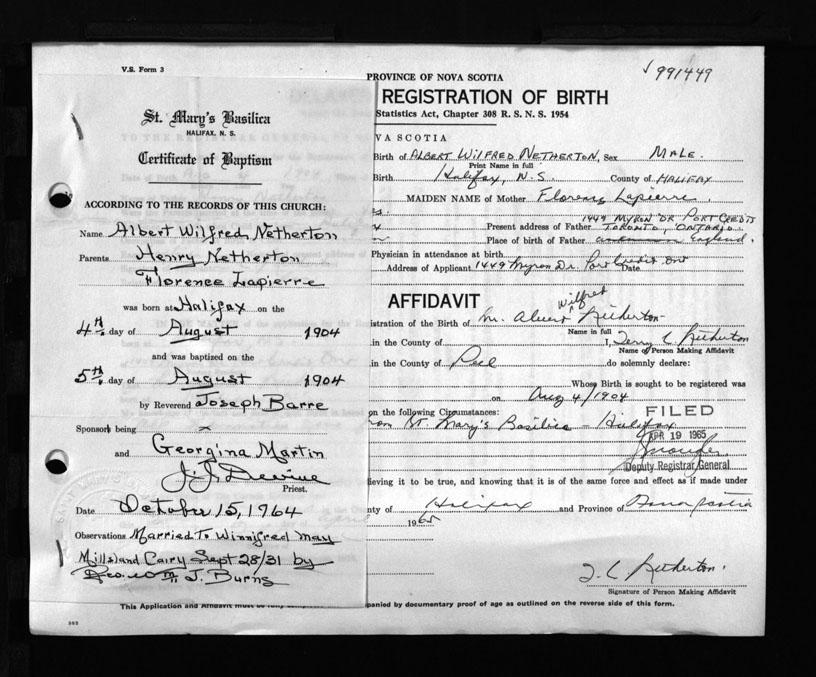 V.S. Form 3
St. Mary's Basilica
HALIFAX, N. S.
Certificate of Baptism
ACCORDING TO THE RECORDS OF THIS CHURCH:
Name Albert Wilfred Netherton
Parents Henry Netherton
Florence Lapierre
was born at Halifax on the
4th day of August 1904
and was baptized on the
5th day of August 1904
by Reverend Joseph Barre
Sponsors being
and Georgina Martin
J. J. Devine
Priest.
Date October 15, 1964
Observations Married To Winnifred May
Cairy Sept 28/31 by
Rev. Wm J. Burns
This Application and Affidavit must be
PROVINCE OF NOVA SCOTIA
√ 991449
REGISTRATION OF BIRTH
Statistics Act, Chapter 308 R. S. N. S. 1954
VA SCOTIA
Birth of ALBERT WILFRED NETHERTON, Sex MALE.
Print Name in full
Birth Halifax, N.S. County of HALIFAX
MAIDEN NAME of Mother Florence Lapierre
1449 MYRON DR PORT CREDIT
Present address of Father TORONTO, ONTARIO.
Place of birth of Father England.
Physician in attendance at birth
Address of Applicant 1449 Myron Dr. Port Credit Ont Date
AFFIDAVIT
Wilfred
istration of the Birth of Netherton
Name in full
in the County of I, L. Netherton
Name of Person Making Affidavit
in the County of Peel do solemnly declare:
Whose Birth is sought to be registered was
on Aug 4/1904
on the following Circumstances:
from St. Mary's Basilica - Halifax
FILED
APR 19 1965
Deputy Registrar General
lieving it to be true, and knowing that it is of the same force and effect as if made under
nty of Halifax and Province of Nova Scotia
1965
L Netherton.
Signature of Person Making Affidavit
panied by documentary proof of age as outlined on the reverse side of this form.